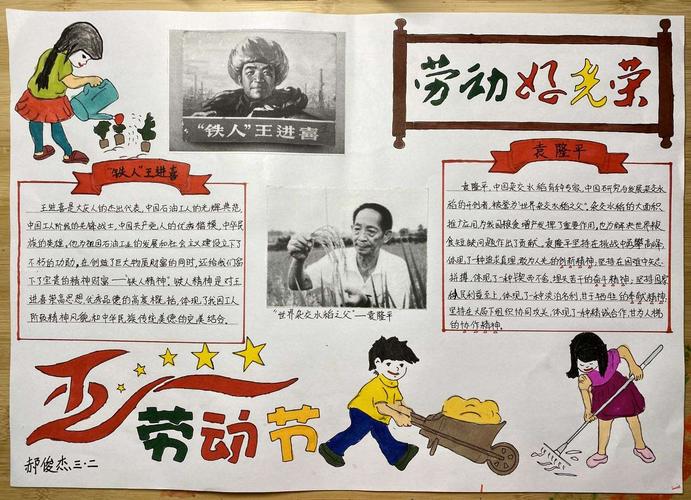 "铁人"王进喜
劳动最光荣
"铁人"王进喜
王进喜是大庆人的杰出代表,中国石油工人的光辉典范,
中国工人阶级的先锋战士,中国共产党人的优秀楷模,中华民
族的英雄。他为祖国石油工业的发展和社会主义建设立下了
不朽的功勋,在创造了巨大物质财富的同时,还给我们留
下了宝贵的精神财富——铁人精神。铁人精神是对王
进喜崇高思想、优秀品德的高度概括,体现了我国工人
阶级精神风貌和中华民族传统美德的完美结合。
袁隆平
袁隆平,中国杂交水稻育种专家,中国研究与发展杂交水
稻的开创者,被誉为"世界杂交水稻之父"。杂交水稻的大面积
推广应用为我国粮食增产发挥了重要作用,也为解决世界粮
食短缺问题作出了贡献。袁隆平坚持在挑战中攀高峰,
体现了一种追求真理,敢为人先的创新精神;坚持在困难中交
拼搏,体现了一种锲而不舍,埋头苦干的奋斗精神;坚持国家
人民利益至上,体现了一种淡泊名利,甘于牺牲的奉献精神;
坚持在大局下组织协同攻关,体现了一种精诚合作,甘为人梯
的协作精神。
"世界杂交水稻之父"—袁隆平
五一
劳动节
郝俊杰 三·二